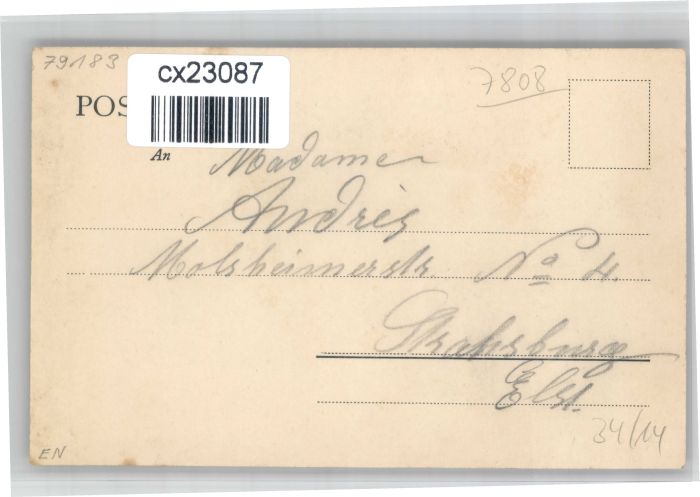 79183
cx23087
7808
POS
An
Madame
Andrès
Molsheimerstr No 4.
Strassburg
Els.
34/14
EN